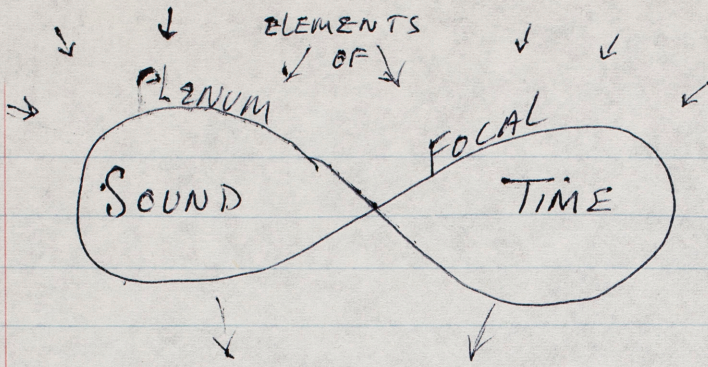 ELEMENTS
OF
PLENUM
FOCAL
SOUND
TIME